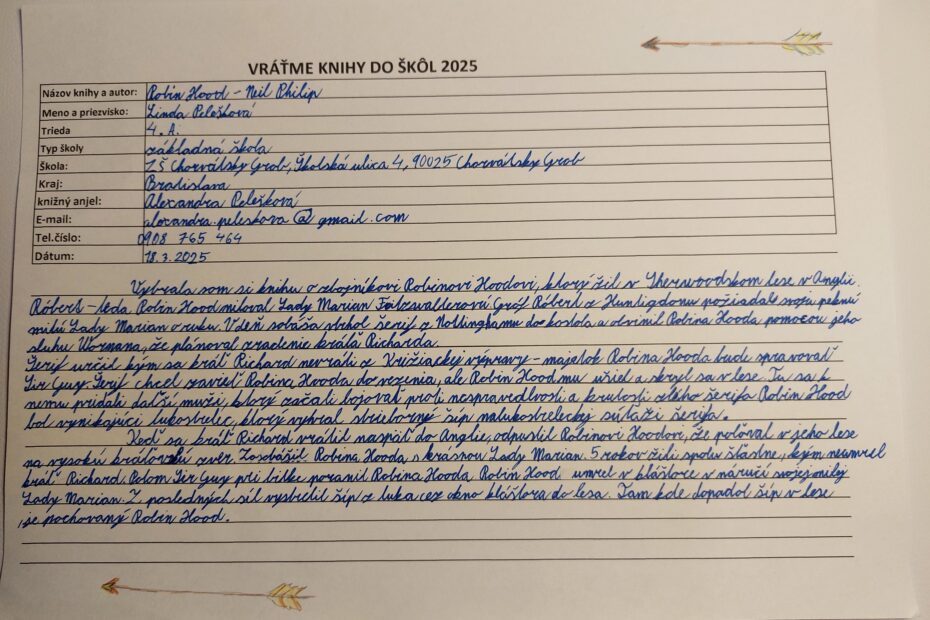 VRÁŤME KNIHY DO ŠKÔL 2025
Názov knihy a autor: Robin Hood - Neil Philip
Meno a priezvisko: Linda Pelešková
Trieda 4. A.
Typ školy základná škola
Škola: ZŠ Chorvátsky Grob, Školská ulica 4, 90025 Chorvátsky Grob
Kraj: Bratislava
knižný anjel: Alexandra Pelešková
E-mail: alexandra.peleskova@gmail.com
Tel.číslo: 0908 765 464
Dátum: 18.3.2025
Vybrala som si knihu o zbojníkovi Robinovi Hoodovi, ktorý žil v Sherwoodskom lese v Anglii.
Róbert - teda Robin Hood miloval Lady Marian Fitzwalterovú Gróf Róbert z Huntigdonu požiadal svoju peknú
milú Lady Marian o ruku. V deň sobáša vtrhol šerif z Nottinghamu do kostola a obvinil Robina Hooda pomocou jeho
sluhu Wormana, že plánoval zradenie kráľa Richarda.
Šerif určil kým sa kráľ Richard nevráti z Križiackej výpravy - majetok Robina Hooda bude spravovať
Sir Guy. Šerif chcel zavrieť Robina Hooda do vezenia, ale Robin Hood mu ušiel a skryl sa v lese. Tu sa k
nemu pridali ďalší muži, ktorý začali bojovať proti nespravodlivosti a krutosti zlého šerifa Robin Hood
bol vynikajúci lukostrelec, ktorý vyhral strieborný šíp na lukostreleckej súťaži šerifa.
Keď sa kráľ Richard vrátil naspäť do Anglie, odpustil Robinovi Hoodovi, že poľoval v jeho lese
na vysokú kráľovskú zver. Zosobášil Robina Hooda s krásnou Lady Marian. 5 rokov žili spolu šťastne, kým neumrel
kráľ Richard. Potom Sir Guy pri bitke poranil Robina Hooda. Robin Hood umrel v kláštore v náručí svojej milej
Lady Marian. Z posledných síl vystrelil šíp z luka cez okno kláštora do lesa. Tam kde dopadol šíp v lese
je pochovaný Robin Hood.